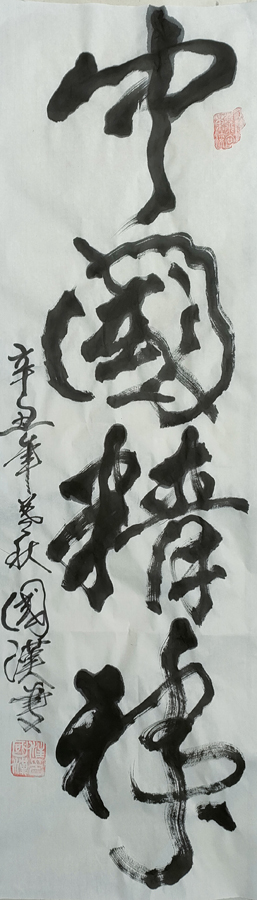 中國精神
辛丑年冬秋國漢書